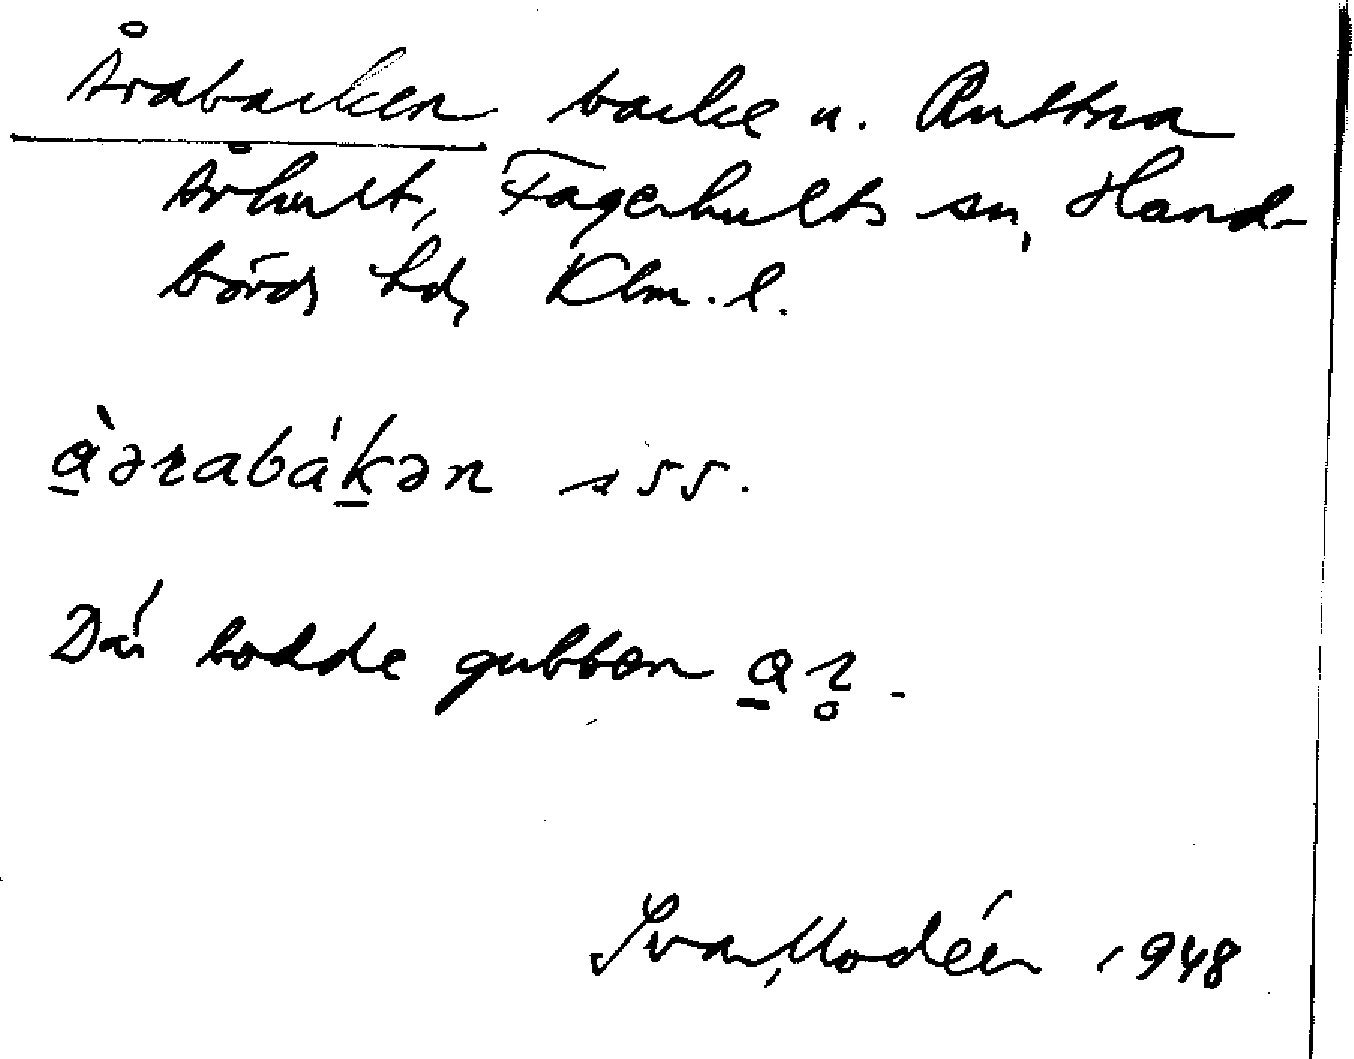 Årabacken backe u. Ruttna
Århult, Fagerhults sn, Hand-
börds hd, Klm. l.
à̱ərabáḵən
Där bodde gubben a̱r̥.
Ivar Modéer 1948